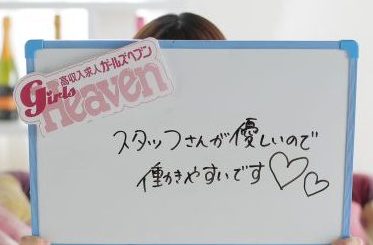 高収入求人ガールズヘブン
girls
Heaven
スタッフさんが優しいので
働きやすいです♡♡